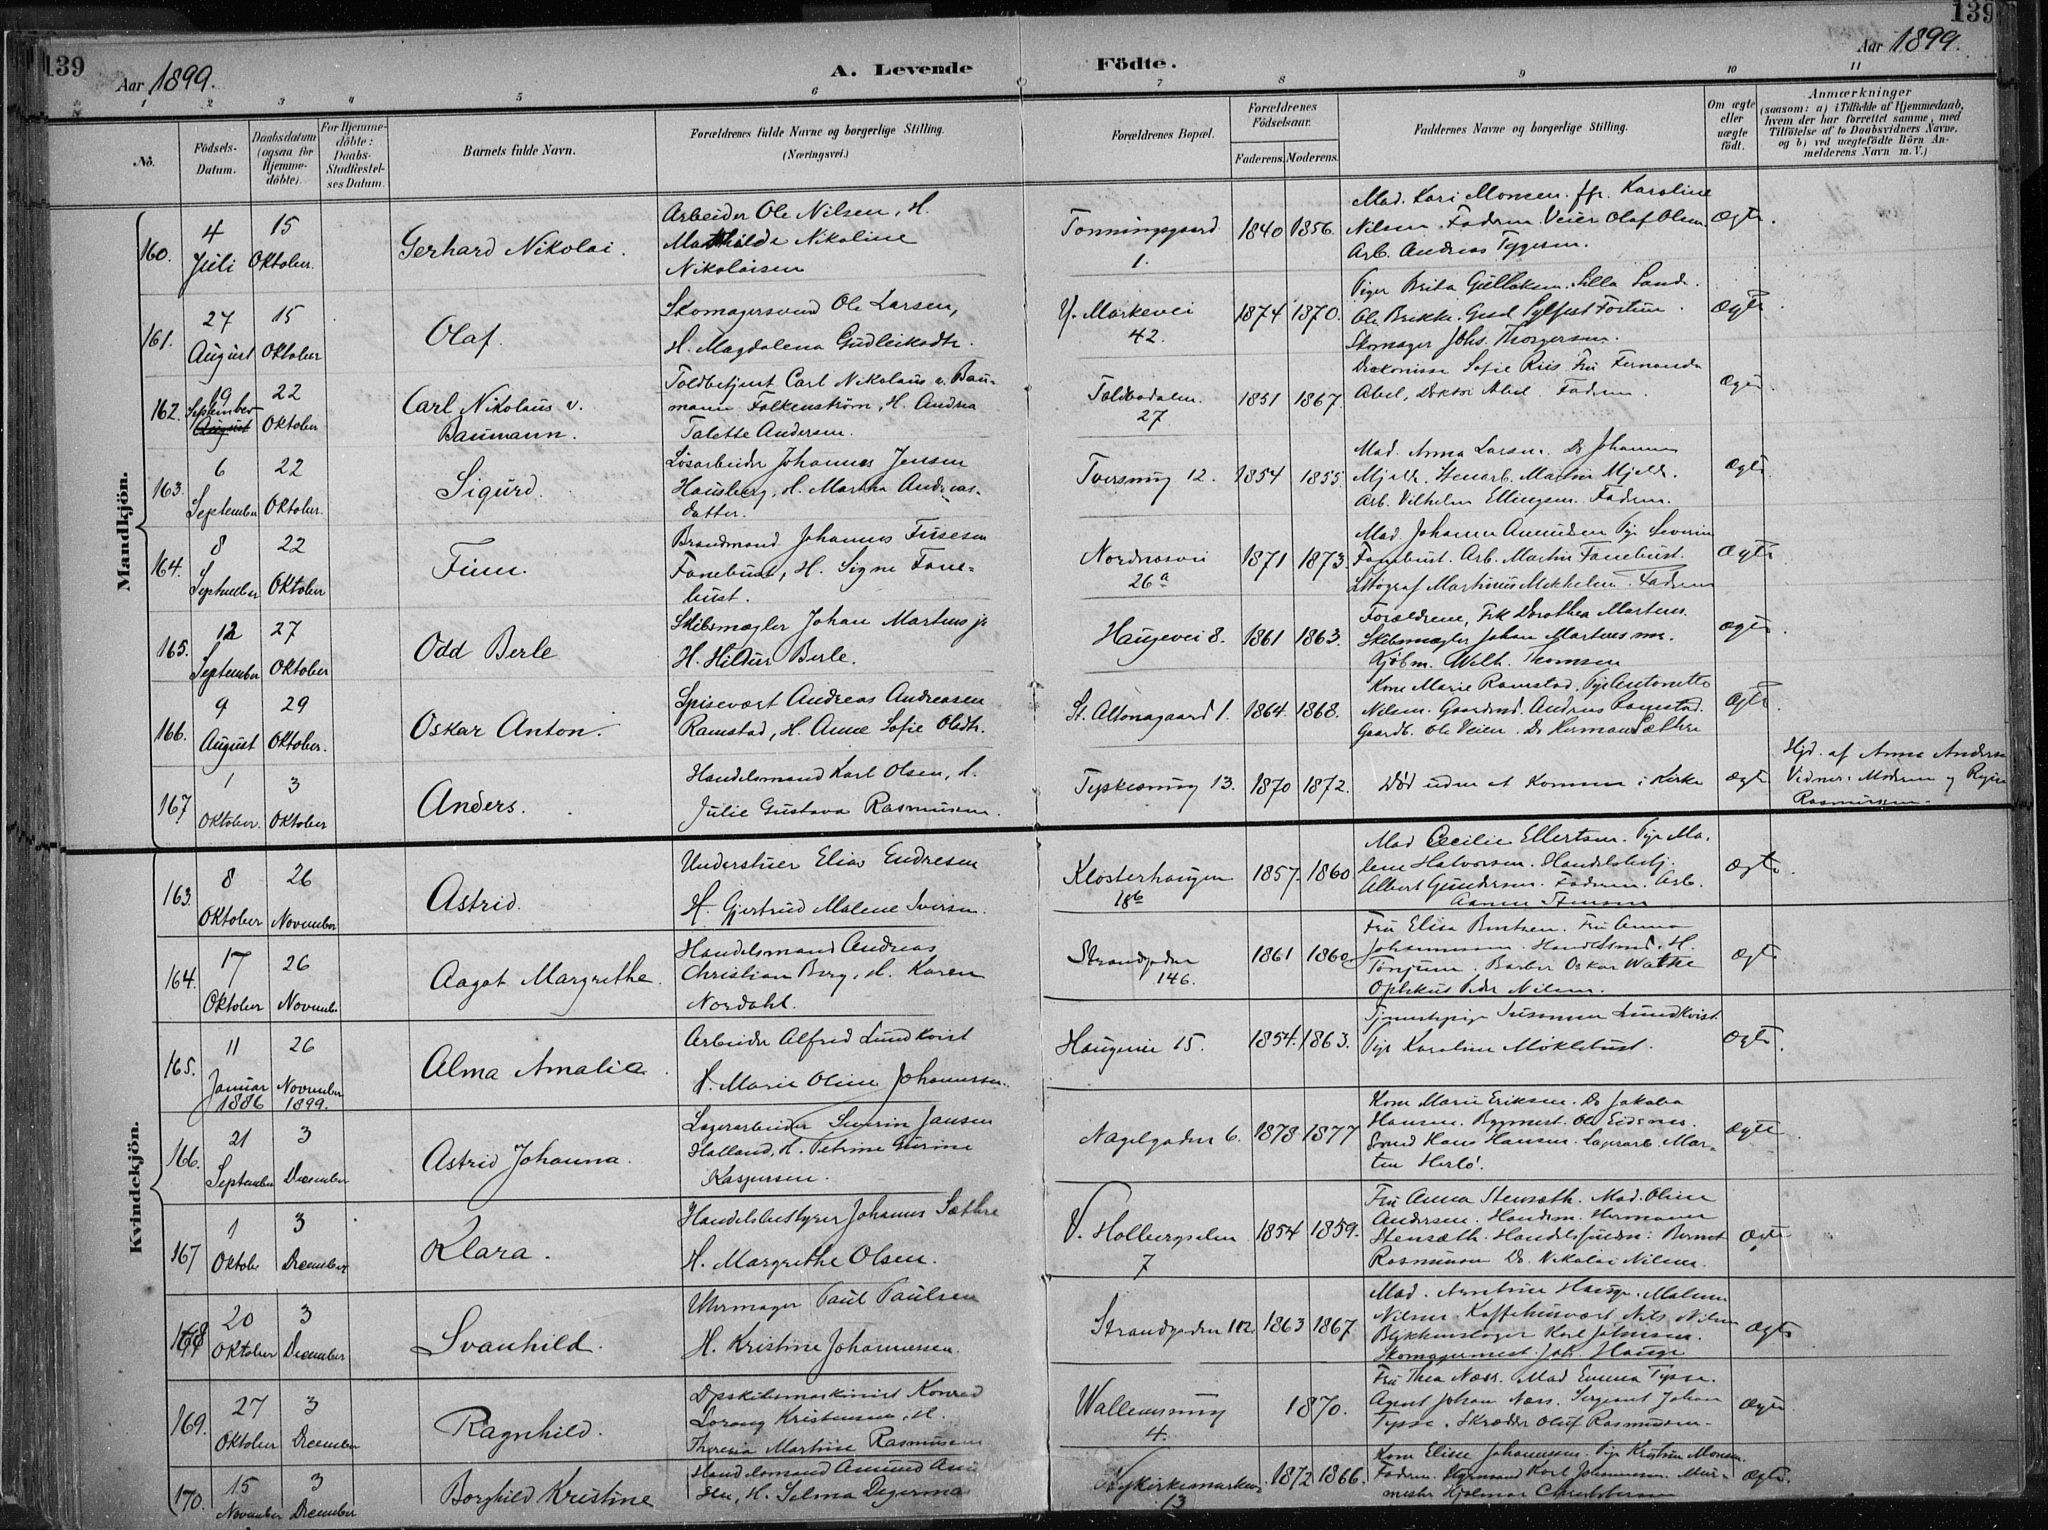 139
139
Aar 1899.
A. Levende Födte.
Aar 1899.
1 2 3 4 5 6 7 8 9 10 11
No.
Födsels-Datum.
Daabsdatum (ogsaa for Hjemmedöbte).
For Hjemmedöbte: Daabs-Stadfæstelses Datum.
Barnets fulde Navn.
Forældrenes fulde Navne og borgerlige Stilling.
(Næringsvei.)
Forældrenes Bopæl.
Forældrenes Födselsaar.
Faderens. Moderens.
Faddernes Navne og borgerlige Stilling.
Om ægte eller uægte födt.
Anmærkninger
(saasom: a) i Tilfælde af Hjemmedaab, hvem der har forrettet samme, med Tilföielse af to Daabsvidners Navne, og b) ved uægtefödte Börn Anmelderens Navn m. V.)
Mandkjön.
160. 4 Juli 15 Oktober. Gerhard Nikolai.
Arbeider Ole Nilsen, H.
Mathilde Nikoline
Nikolaisen
Tonningsgaard 1. 1840 1856.
Mad. Kari Monsen. Karoline
Nilsen. Faderen. Veier Olaf Olsen
Arb. Andreas Tygesen.
Ægte.
161. 27 August 15 Oktober Olaf.
Skomagersvend Ole Larsen,
H. Magdalena Gudleiksdtr.
Y. Markevei 42. 1874 1870.
Piger Brita Gullaksen. Silla Sand.
Ole Brekke. Gesel Sylfest Fortun.
Skomager Johs. Thorgersen.
Ægte
162. 19 September August 22 Oktober Carl Nikolaus v. Baumann.
Toldbetjent Carl Nikolaus v. Bau-
mann Falkenström, H. Andrea
Talette Andersen.
Toldbodalm. 27 1851 1867.
Diakonisse Sofie Riis Fru Fernanda
Abel, Doktor Abel. Faderen.
Ægte
163. 6 September 22 Oktober. Sigurd.
Løsarbeider Johannes Jensen
Hausberg, H. Martha Andreas-
datter.
Tversmug 12. 1854 1855.
Mad. Anna Larsen. Do Johanne
Mjelde. Stenarb. Martin Mjelde.
Arb. Vilhelm Ellingsen. Faderen.
Ægte
164. 8 September 22 Oktober Finn.
Brandmand Johannes
Fanebust, H. Signe Fane-
bust.
Nordnæsvei 26a 1871 1873.
Mad. Johanne Amundsen Pige Severine
Fanebust. Arb. Martin Fanebust.
Litograf Martinus Mikkelsen. Faderen
Ægte
165. 12 September 27 Oktober Odd Berle
Skibsmægler Johan Martens jr
H. Hildur Berle.
Haugevei 8. 1861 1863.
Forældrene, Frk Dorothea Martens.
Skibsmægler Johan Martens sen.
Kjøbm. Wilh. Thomsen
Ægte
166. 9 August 29 Oktober. Oskar Anton.
Spisevært Andreas Andreasen
Ramstad, H. Anne Sofie Olsdtr.
St. Altonagaard 1. 1864. 1868.
Kone Marie Ramstad. Pige Antonette
Nilsen. Gaardmd. Andreas Ramstad.
Gaardb. Ole Veien. Do Herman Sæthre
Ægte
167. 1 Oktober. 3 Oktober Anders.
Handelsmand Karl Olsen, H.
Julie Gustava Rasmusen.
Tyskesmug 13. 1870 1872.
Död uden at komme i Kirke
Ægte
Hjd. af Anna Anders
Vidner: Moderen og
Rasmussen.
Kvindekjön.
163. 8 Oktober 26 November Astrid.
Understuer Elias Endresen
H. Gjertrud Malene Iversen.
Klosterhaugen 18b 1857. 1860
Mad Cecilie Ellertsen. Pige Ma-
lene Halvorsen. Handelsbetj.
Albert Gundersen. Faderen. Arb.
Stensen
Ægte
164. 17 Oktober 26 Novembr Aagot Margrethe.
Handelsmand Andreas
Christian Berg, H. Karen
Nordahl.
Strandgaden 146. 1861 1860
Fru Elisa Berntsen. Fru Anna
Johannesen. Handelsmd. H.
Tönjum. Barber Oskar Wathe
Optikus Peder Nilsen.
Ægte
165. 11 Januar 1886 26 November 1899. Alma Amalia.
Arbeider Alfred Lundkvist
H. Marie Oline Johannessen.
Haugevei 15. 1854. 1863.
Tjenestepige Susanne Lundkvist.
Pige Karoline Möklebust.
Ægte.
166. 21 September 3 December Astrid Johanna.
Lagerarbeider Severin Jansen
Halland, H. Petrine Gurine
Kaspersen.
Nagelgaden 6. 1878 1877
Kone Marie Eriksen. Do Jakoba
Hansen. Bygmest. Ole Eidsnes.
Smed Hans Hansen. Lagerarb. Mar-
tin Herlö.
Ægte
167 1 Oktobr 3 December Klara.
Handelsbestyrer Johannes Sæthre
H. Margrethe Olsen.
V. Holbergsalm 7 1854 1859.
Fru Anna Stensæth. Mad. Oline
Andersen. Handesm. Hermann
Stensæth. Handelsfuldm: Bernt
Rasmusen Do. Nikolai Nilsen.
Ægte
168 20 Oktober 3 December Svanhild.
Uhrmager Paul Paulsen
H. Kristine Johannessen.
Strandgaden 112. 1863 1867
Mad. Hauge. Malene
Nilsen. Kaffehusvært Nils Nilsen
Blykkenslager Karl Johnsen.
Skomagermest. Jak. Hauge
Ægte
169. 27 Oktober 3 December Ragnhild.
Dpskibsmaskinist Konrad
Lorang Kristensen, H.
Theresia Martine Rasmusen
Wallemsmug 4. 1870.
Fru Thea Næss. Mad Emma Tysse.
Agent Johan Næss. Sergeant Johan
Tysse. Skrædder Oluf Rasmusen.
Ægte
170. 15 November 3 December Borghild Kristine
Handelsmand Amund Amu
sen, H. Selma Degerma
Nykirkesmarken 13 1872 1866.
Kone Elise Johannessen. Pige Kristine Monsen.
Faderen. Styrmand Karl Johannesen. Mur-
mester Hjalmar Christophersen
Ægte